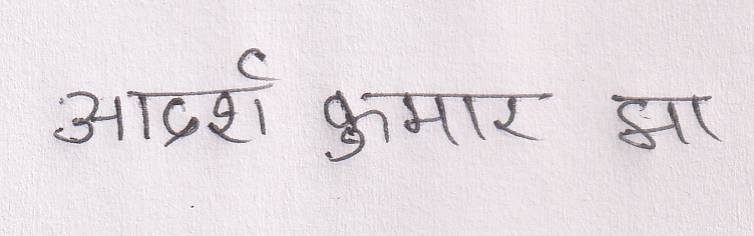 आदर्श कुमार झा